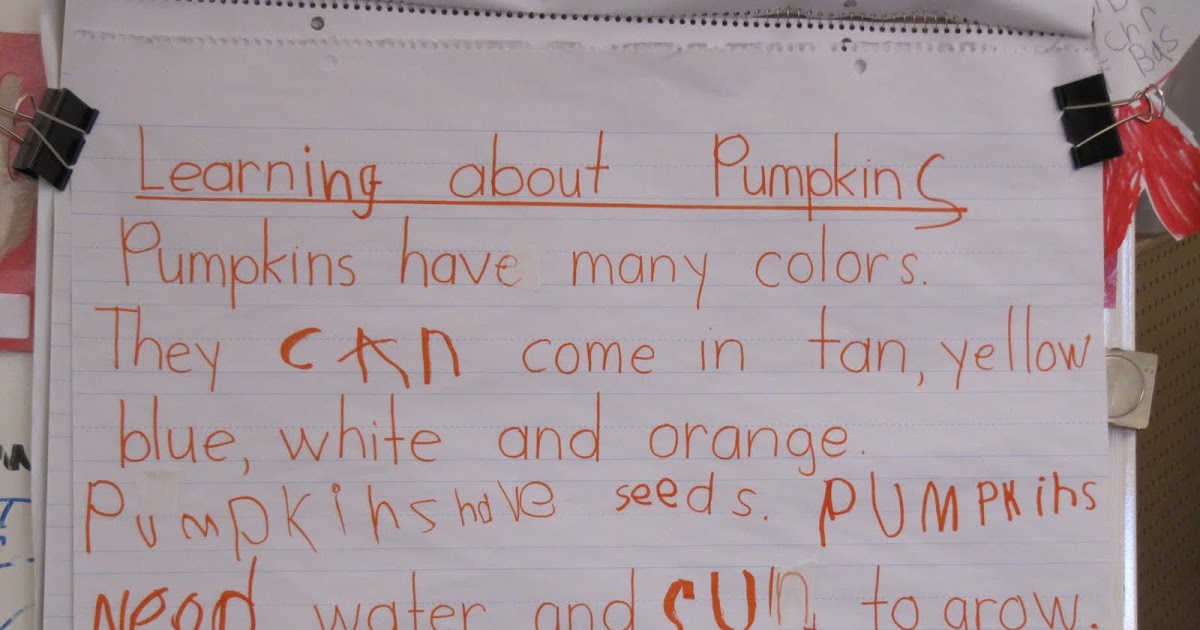 Chr
Bas
Learning about Pumpkins
Pumpkins have many colors.
They cAn come in tan, yellow
blue, white and orange.
Pumpkihs have seeds. PUMPKihs
Need water and sun to grow.